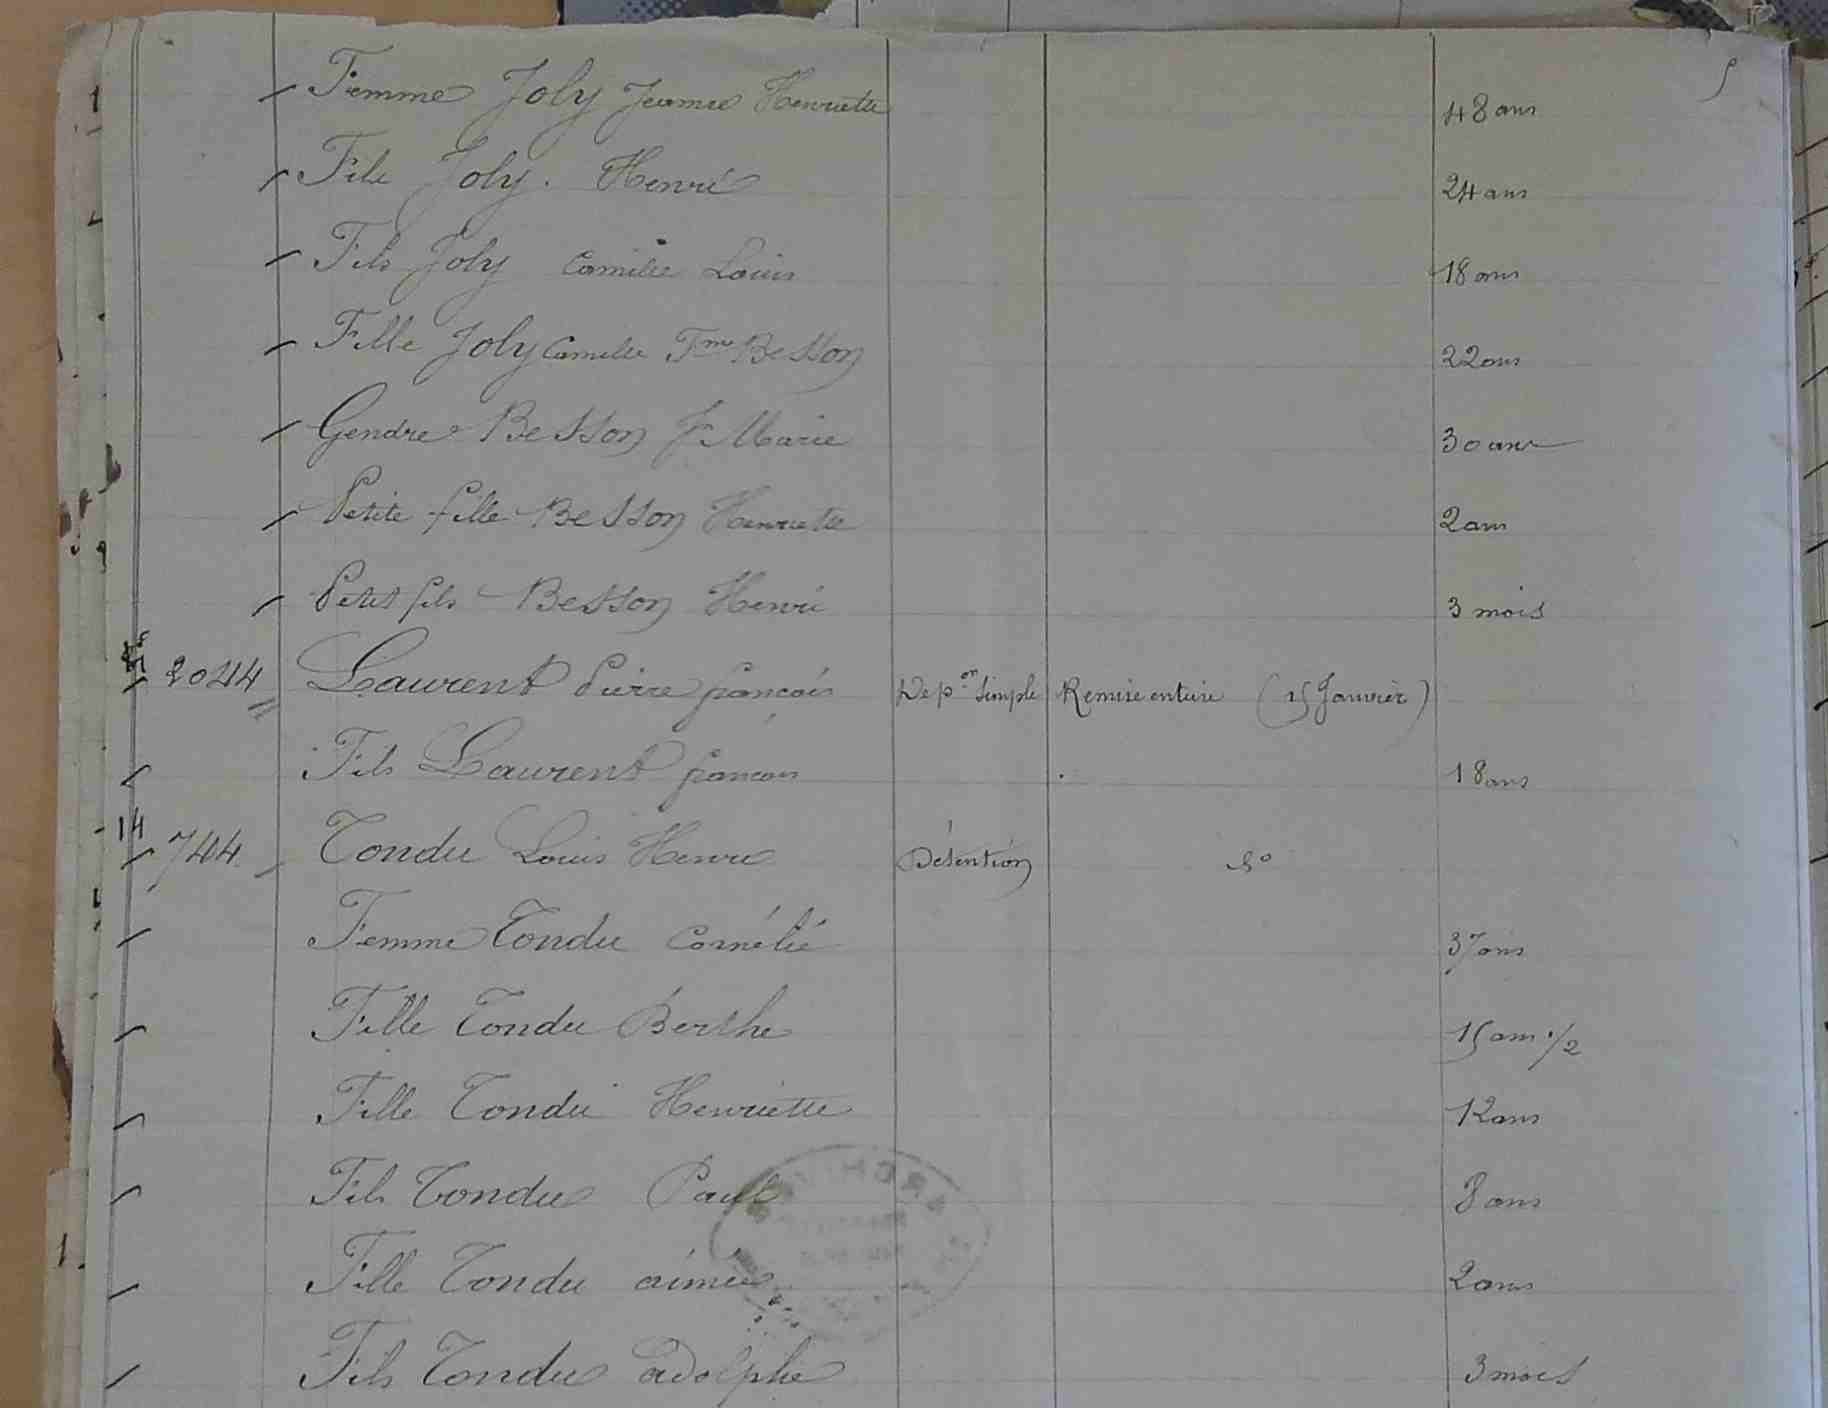 5
Femme Joly Jeanne Henriette 48 ans
Fils Joly. Henri 24 ans
Fils Joly Camille Louis 18 ans
Fille Joly Camille Fme Besson 22 ans
Gendre Besson Jn Marie 30 ans
Petite fille Besson Henriette 2 ans
Petit fils Besson Henri 3 mois
2044 Laurent Pierre françois Depon simple Remise entiere (15 Janvier)
Fils Laurent françois 18 ans
14
744 Tondu Louis Henri Détention do
Femme Tondu Cornélie 37 ans
Fille Tondu Berthe 15 ans 1/2
Fille Tondu Henriette 12 ans
Fils Tondu Paul 8 ans
Fille Tondu aimée 2 ans
Fils Tondu adolphe 3 mois